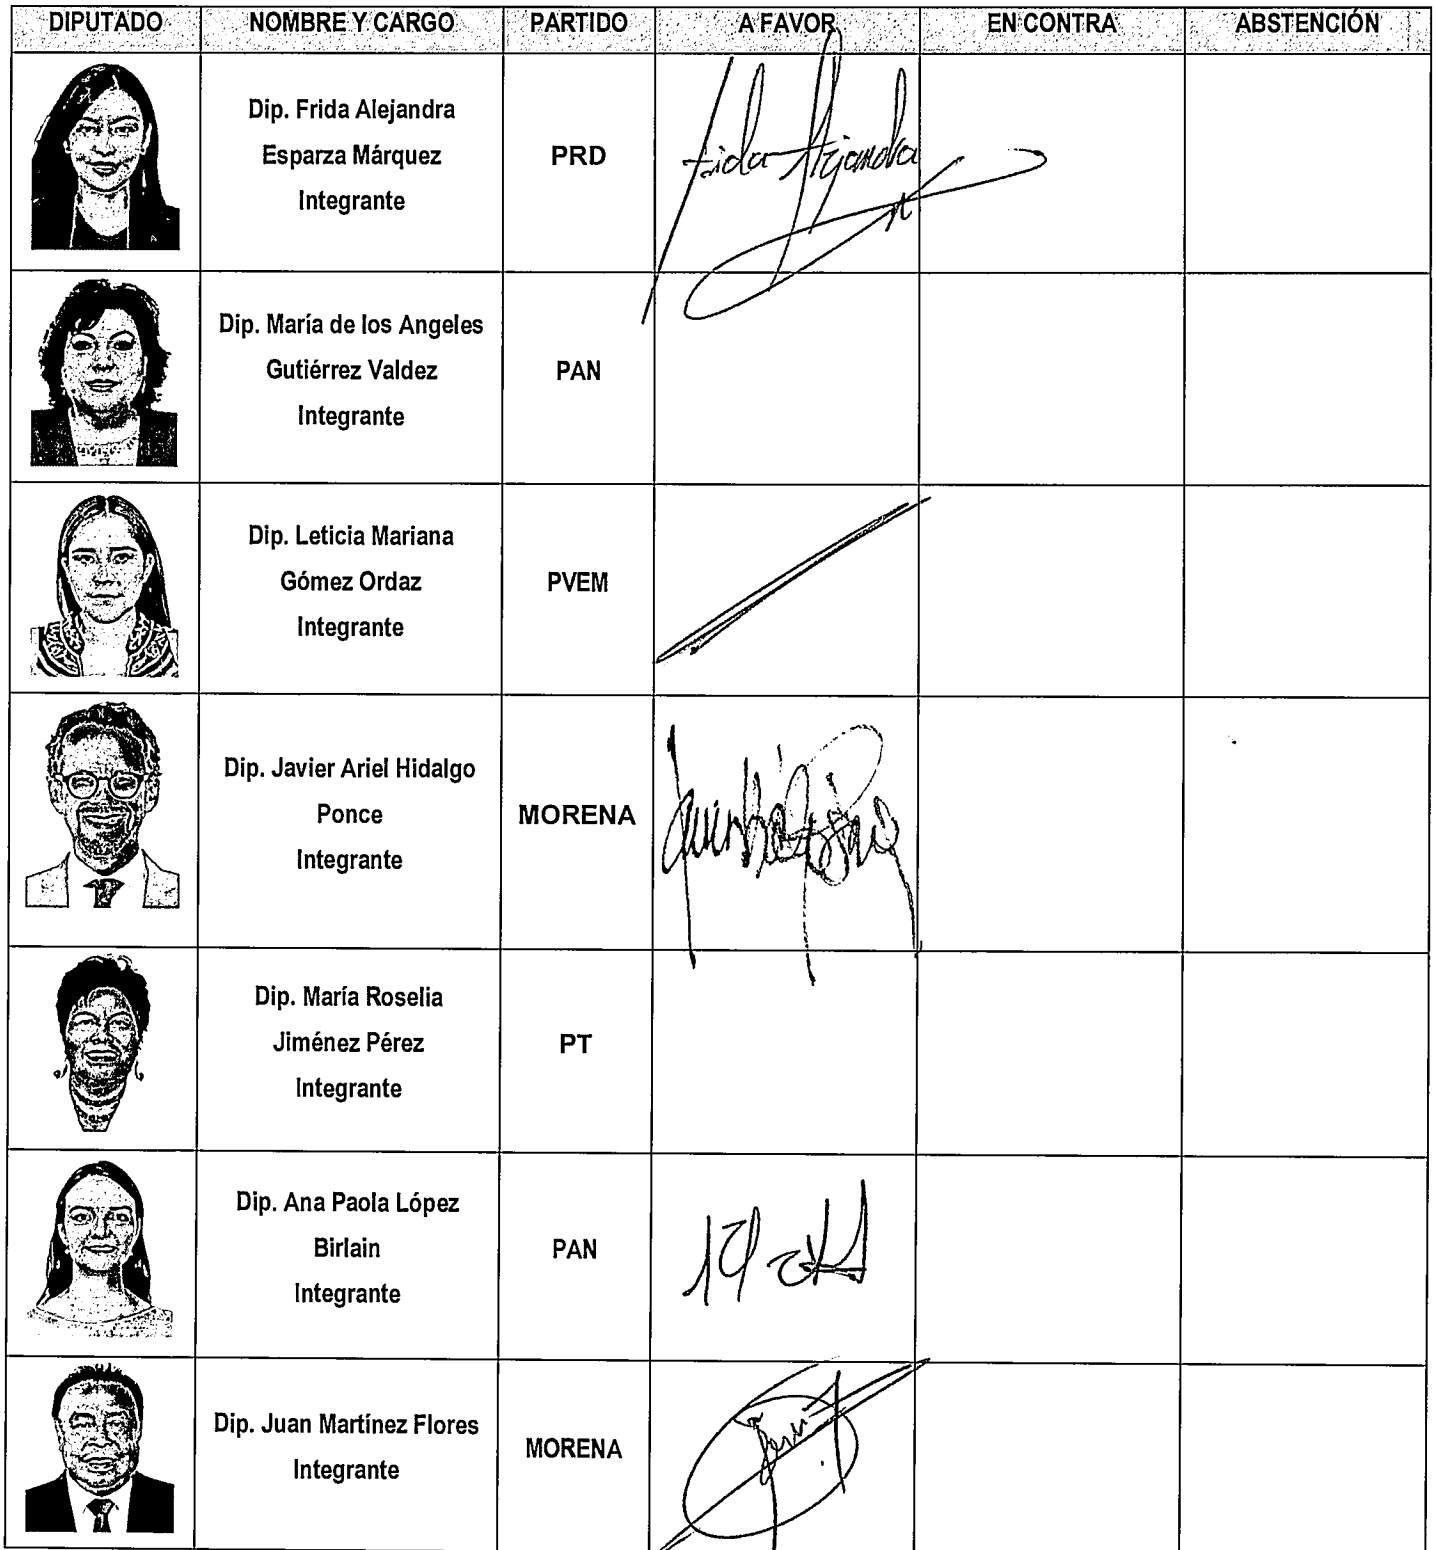 DIPUTADO NOMBRE Y CARGO PARTIDO A FAVOR EN CONTRA ABSTENCIÓN
Dip. Frida Alejandra
Esparza Márquez
Integrante
PRD
Frida Alejandra
Dip. María de los Angeles
Gutiérrez Valdez
Integrante
PAN
Dip. Leticia Mariana
Gómez Ordaz
Integrante
PVEM
Dip. Javier Ariel Hidalgo
Ponce
Integrante
MORENA
Dip. María Roselia
Jiménez Pérez
Integrante
PT
Dip. Ana Paola López
Birlain
Integrante
PAN
Dip. Juan Martínez Flores
Integrante
MORENA